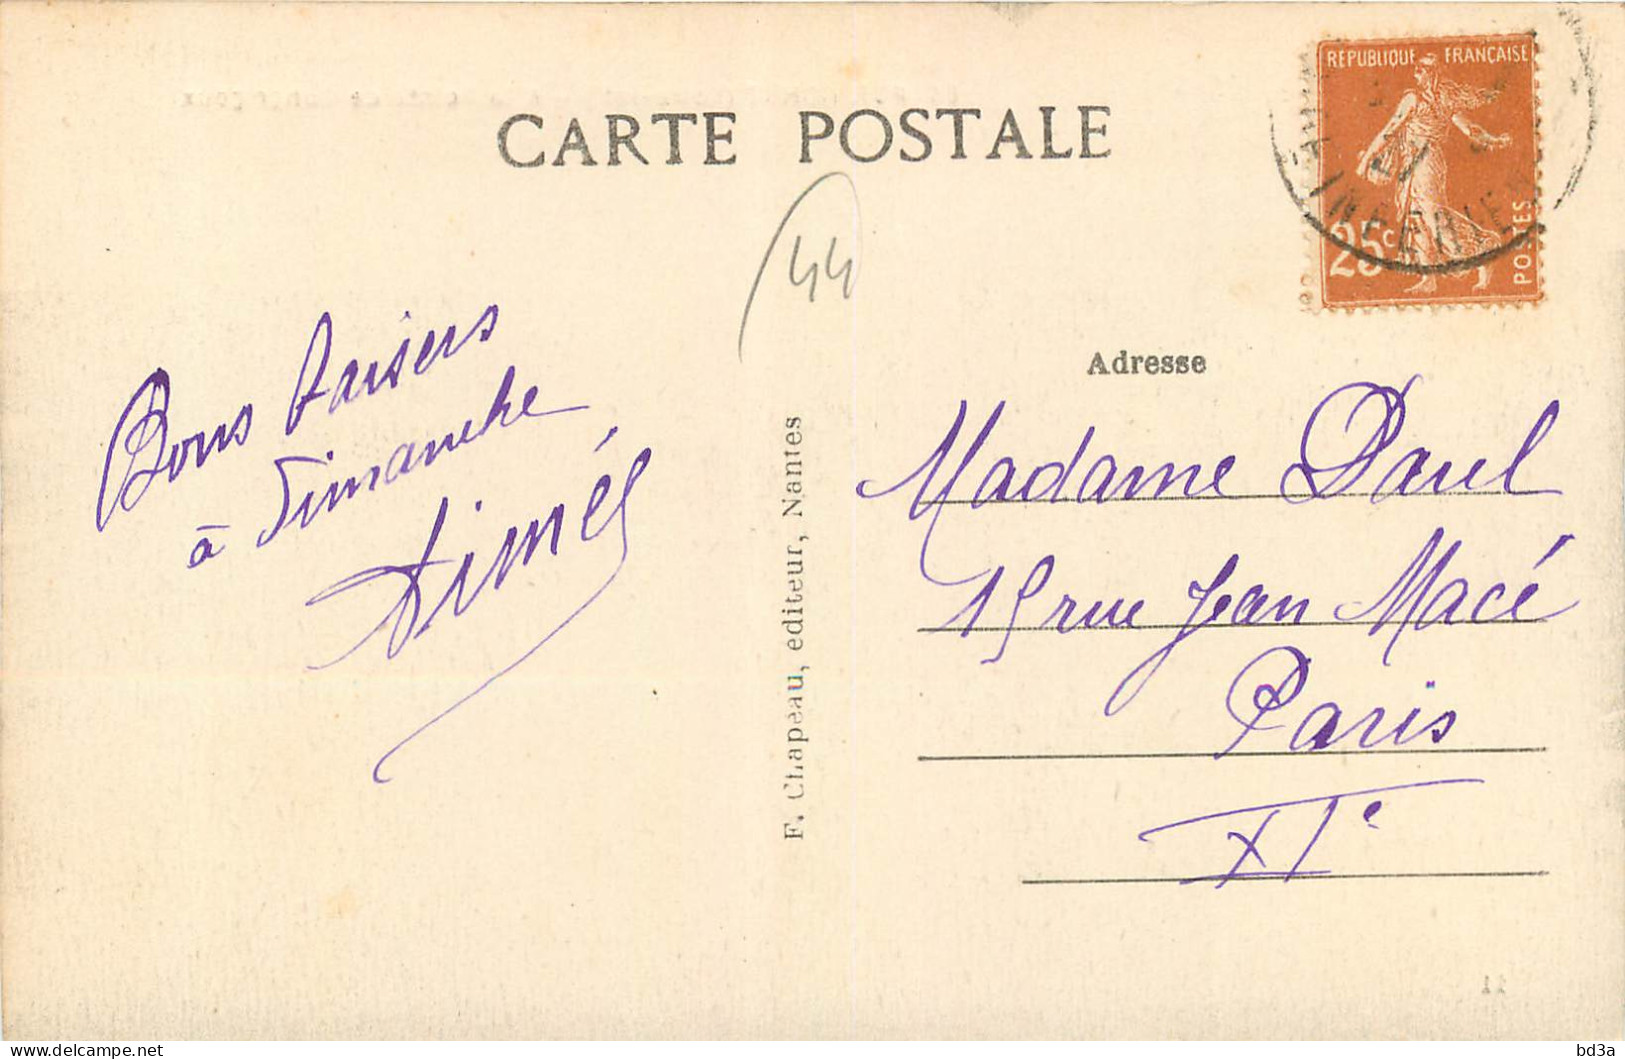 CARTE POSTALE
REPUBLIQUE FRANÇAISE
25c
POSTES
44
Adresse
Bons baisers
à Dimanche
Aimé
F. Chapeau, editeur, Nantes
Madame Paul
15 rue Jean Macé
Paris
XIe
11
bd3a